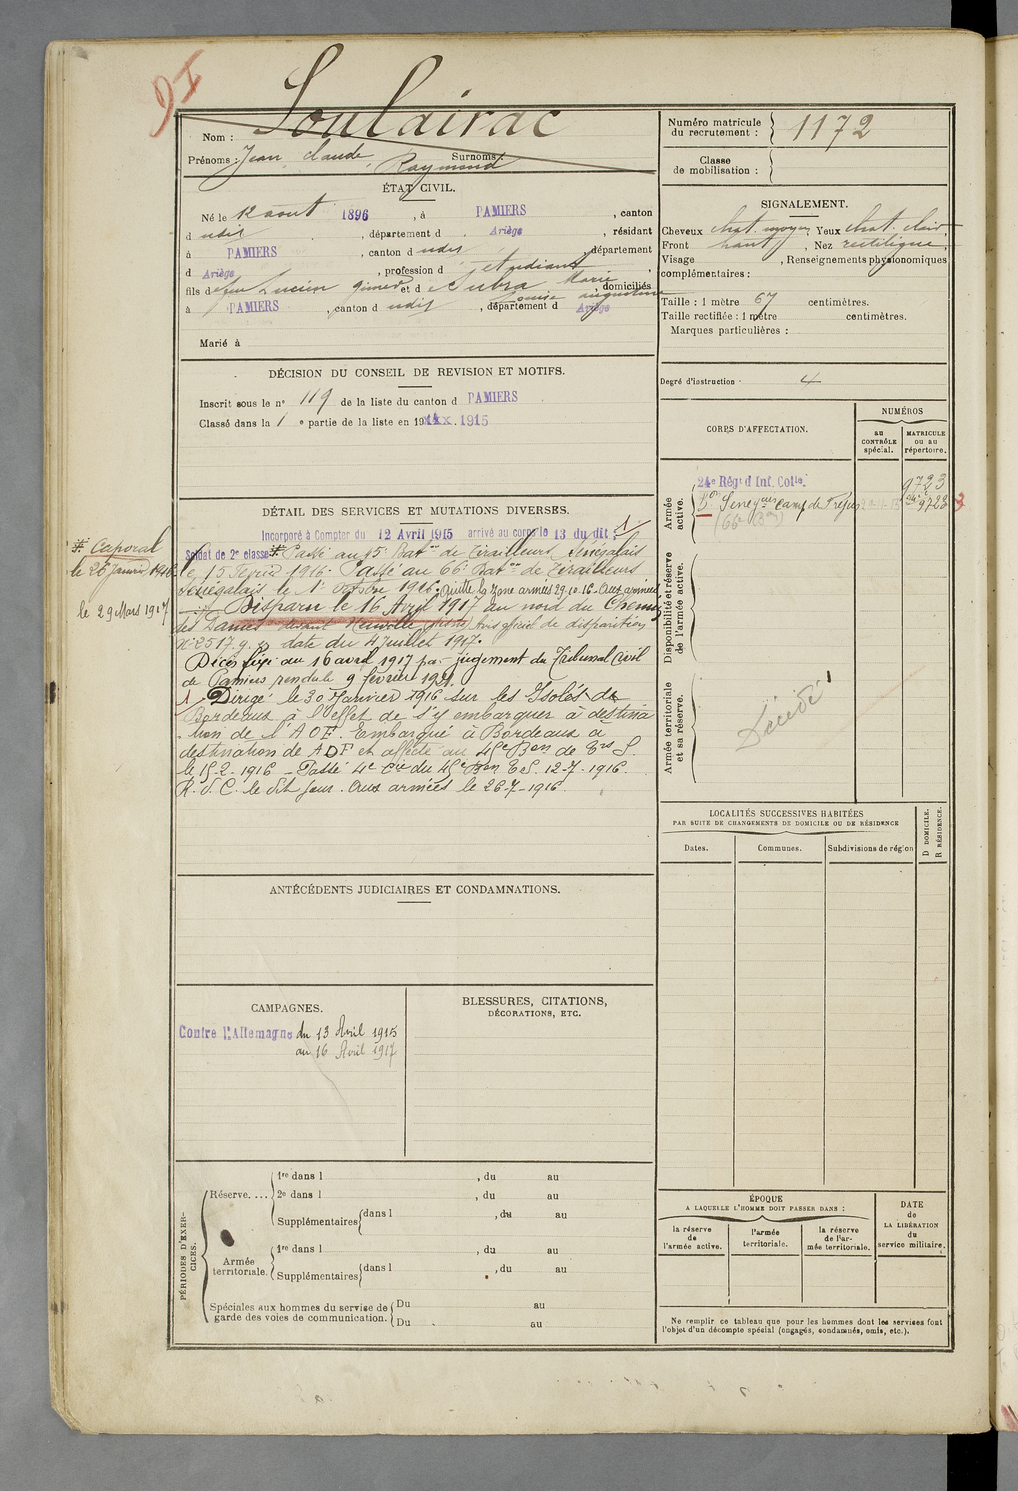 Nom : Soulairac
Prénoms : Jean Claude Raymond Surnoms :
ÉTAT CIVIL.
Né le 12 aout 1896, à PAMIERS, canton
d udis, département d Ariège, résidant
à PAMIERS, canton d udis, département
d Ariège, profession d étudiant
fils de feu Lucien et d Subra Marie Louise Augustine, domiciliés
à PAMIERS, canton d udis, département d Ariège
Marié à
DÉCISION DU CONSEIL DE REVISION ET MOTIFS.
Inscrit sous le n° 119 de la liste du canton d PAMIERS
Classé dans la 1 e partie de la liste en 1915
DÉTAIL DES SERVICES ET MUTATIONS DIVERSES.
Incorporé à Compter du 12 Avril 1915 arrivé au corps le 13 du dit 1
Soldat de 2e classe # Passé au 15e Baton de Tirailleurs Sénégalais
le 15 Février 1916. Passé au 66e Baton de Tirailleurs
Sénégalais le 1er Octobre 1916. Quitte la zone armées 29.10.16. Aux armées
# Caporal
le 26 Janvier 1916
le 29 Mars 1917
Disparu le 16 Avril 1917 au nord du Chemin
des Dames Avis officiel de disparition
N° 2517 date du 4 Juillet 1917.
Décès fixé au 16 avril 1917 par jugement du Tribunal Civil
de Pamiers rendu le 9 février 1921.
1 Dirigé le 30 Janvier 1916 sur les Isolés de
Bordeaux à l'effet de s'y embarquer à destina
-tion de l'AOF. Embarqué à Bordeaux à
destination de AOF et affecté au 45e Bon de Trs S.
le 15-2-1916 - Passé 4e Cie du 45e Bon T.S. 12-7-1916.
R.d.C. le dit jour. Aux armées le 26-7-1916.
ANTÉCÉDENTS JUDICIAIRES ET CONDAMNATIONS.
CAMPAGNES.
Contre l'Allemagne du 13 Avril 1915
au 16 Avril 1917
BLESSURES, CITATIONS,
DÉCORATIONS, ETC.
PÉRIODES D'EXERCICES.
Réserve....
1re dans l , du au
2e dans l , du au
Supplémentaires dans l , du au
Armée
territoriale.
1re dans l , du au
Supplémentaires dans l , du au
Spéciales aux hommes du service de
garde des voies de communication.
Du au
Du au
Numéro matricule
du recrutement : 1172
Classe
de mobilisation :
SIGNALEMENT.
Cheveux chat. moyen, Yeux chat. clair,
Front haut, Nez rectiligne,
Visage , Renseignements physionomiques
complémentaires :
Taille : 1 mètre 67 centimètres.
Taille rectifiée : 1 mètre centimètres.
Marques particulières :
Degré d'instruction. 4
CORPS D'AFFECTATION.
NUMÉROS
au
CONTRÔLE
spécial.
MATRICULE
ou au
répertoire.
Armée
active.
24e Régt d'Inf. Cole. 9723
Bon Sénégais Camp de Fréjus 9723 3
Disponibilité et réserve
de l'armée active.
Armée territoriale
et sa réserve.
Décédé
LOCALITÉS SUCCESSIVES HABITÉES
PAR SUITE DE CHANGEMENTS DE DOMICILE OU DE RÉSIDENCE
Dates.
Communes.
Subdivisions de région
D DOMICILE.
R RÉSIDENCE.
ÉPOQUE
A LAQUELLE L'HOMME DOIT PASSER DANS :
la réserve
de
l'armée active.
l'armée
territoriale.
la réserve
de l'ar-
mée territoriale.
DATE
de
LA LIBÉRATION
du
service militaire.
Ne remplir ce tableau que pour les hommes dont les services font
l'objet d'un décompte spécial (engagés, condamnés, omis, etc.).